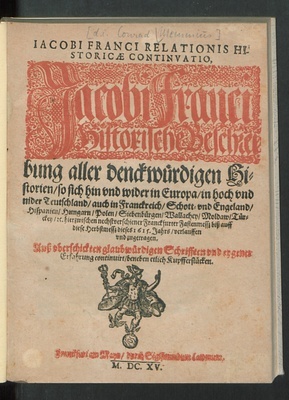 [d.i. Conrad Memmius]
IACOBI FRANCI RELATIONIS HI-
STORICÆ CONTINVATIO,
Jacobi Francen
Historische Beschrei-
bung aller denckwürdigen Hi-
storien/ so sich hin vnd wider in Europa/ in hoch vnd
nider Teutschland/ auch in Franckreich/ Schott- vnd Engeland/
Hispanien/ Hungarn/ Polen/ Siebenbürgen/ Wallachey/ Moldaw/ Tür-
ckey/ ꝛc. zwischen nechstverschiener Franckfurter Fastenmeß/ biß auff
diese Herbstmeß dieses 1615. Jahrs/ verlauffen
vnd zugetragen.
Auß vberschickten glaubwürdigen Schrifften vnd eygener
Erfahrung continuirt/ beneben etlich Kupfferstücken.
Franckfurt am Mayn/ durch Sigismundum Latomum,
M. DC. XV.